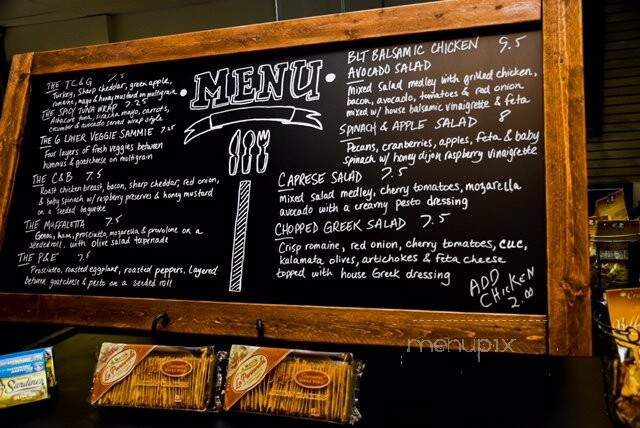 MENU
THE TC & G 7.5
Turkey, sharp cheddar, green apple,
romaine, mayo & honey mustard on multigrain
THE SPICY TUNA WRAP 7.25
Albacore tuna, siracha mayo, carrots,
cucumber & avocado served wrap style
THE 6 LAYER VEGGIE SAMMIE 7.25
Four layers of fresh veggies between
hummus & goatchese on multigrain
THE C&B 7.5
Roast chicken breast, bacon, sharp cheddar, red onion,
& baby spinach w/ raspberry preserves & honey mustard
on a seeded baguette
THE MUFFALETTA 7.5
Genoa, ham, prosciutto, mozarella & provolone on a
seeded roll, with olive salad tapenade
THE P&E 7.5
Prosciutto, roasted eggplant, roasted peppers, layered
between goatchese & pesto on a seeded roll
BLT BALSAMIC CHICKEN 9.5
AVOCADO SALAD
Mixed Salad medley with grilled chicken,
bacon, avocado, tomatoes & red onion
mixed w/ house balsamic vinaigrette & feta
SPINACH & APPLE SALAD 8
Pecans, cranberries, apples, feta & baby
spinach w/ honey dijon raspberry vinaigrette
CAPRESE SALAD 7.5
mixed salad medley, cherry tomatoes, mozarella
avocado with a creamy pesto dressing
CHOPPED GREEK SALAD 7.5
Crisp romaine, red onion, cherry tomatoes, cuc,
kalamata olives, artichokes & feta cheese
topped with house Greek dressing
ADD
CHICKEN
2.00
menupix
Sardines